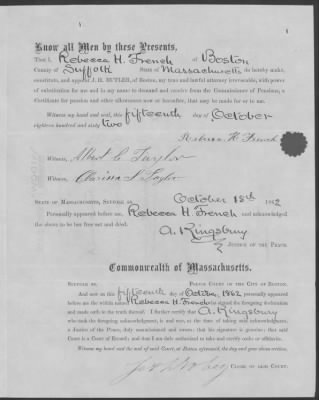 Know all Men by these Presents,
That I Rebecca H. French of Boston
County of Suffolk State of Massachusetts do hereby make,
constitute, and appoint J. H. BUTLER, of Boston, my true and lawful attorney irrevocable, with power
of substitution for me and in my name to demand and receive from the Commissioner of Pensions, a
Certificate for pension and other allowances now or hereafter, that may be made for or to me.
Witness my hand and seal, this fifteenth day of October
eighteen hundred and sixty two
Rebecca H. French
Witness, Albert C. Taylor
Witness, Clarissa Taylor
STATE OF MASSACHUSETTS, SUFFOLK SS. October 15th 1862
Personally appeared before me, Rebecca H. French and acknowledged
the above to be her free act and deed.
A. Kingsbury
JUSTICE OF THE PEACE.
Commonwealth of Massachusetts.
SUFFOLK SS. POLICE COURT OF THE CITY OF BOSTON.
And now on this fifteenth day of October, 1862, personally appeared
before me the within named Rebecca H. French who signed the foregoing declaration
and made oath to the truth thereof. I further certify that A. Kingsbury
who took the foregoing acknowledgment, is and was, at the time of taking said acknowledgment,
a Justice of the Peace, duly commissioned and sworn: that his signature is genuine; that said
Court is a Court of Record; and that I am duly authorized to take and certify oaths or affidavits.
Witness my hand and the seal of said Court, at Boston aforesaid, the day and year above written.
CLERK OF SAID COURT.